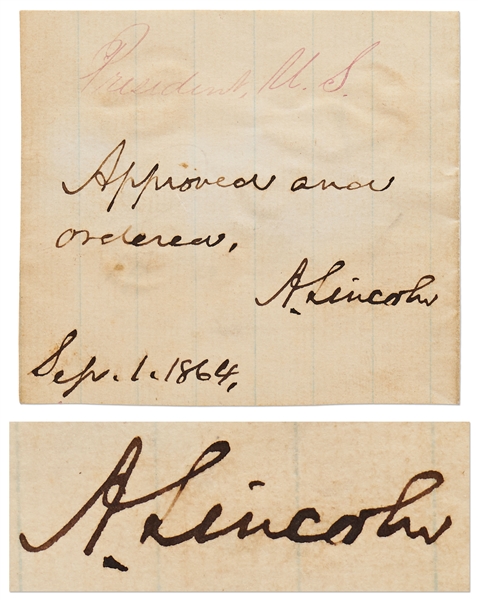 President, U.S.
Approved and
ordered.
A. Lincoln
Sep. 1. 1864.
A. Lincoln